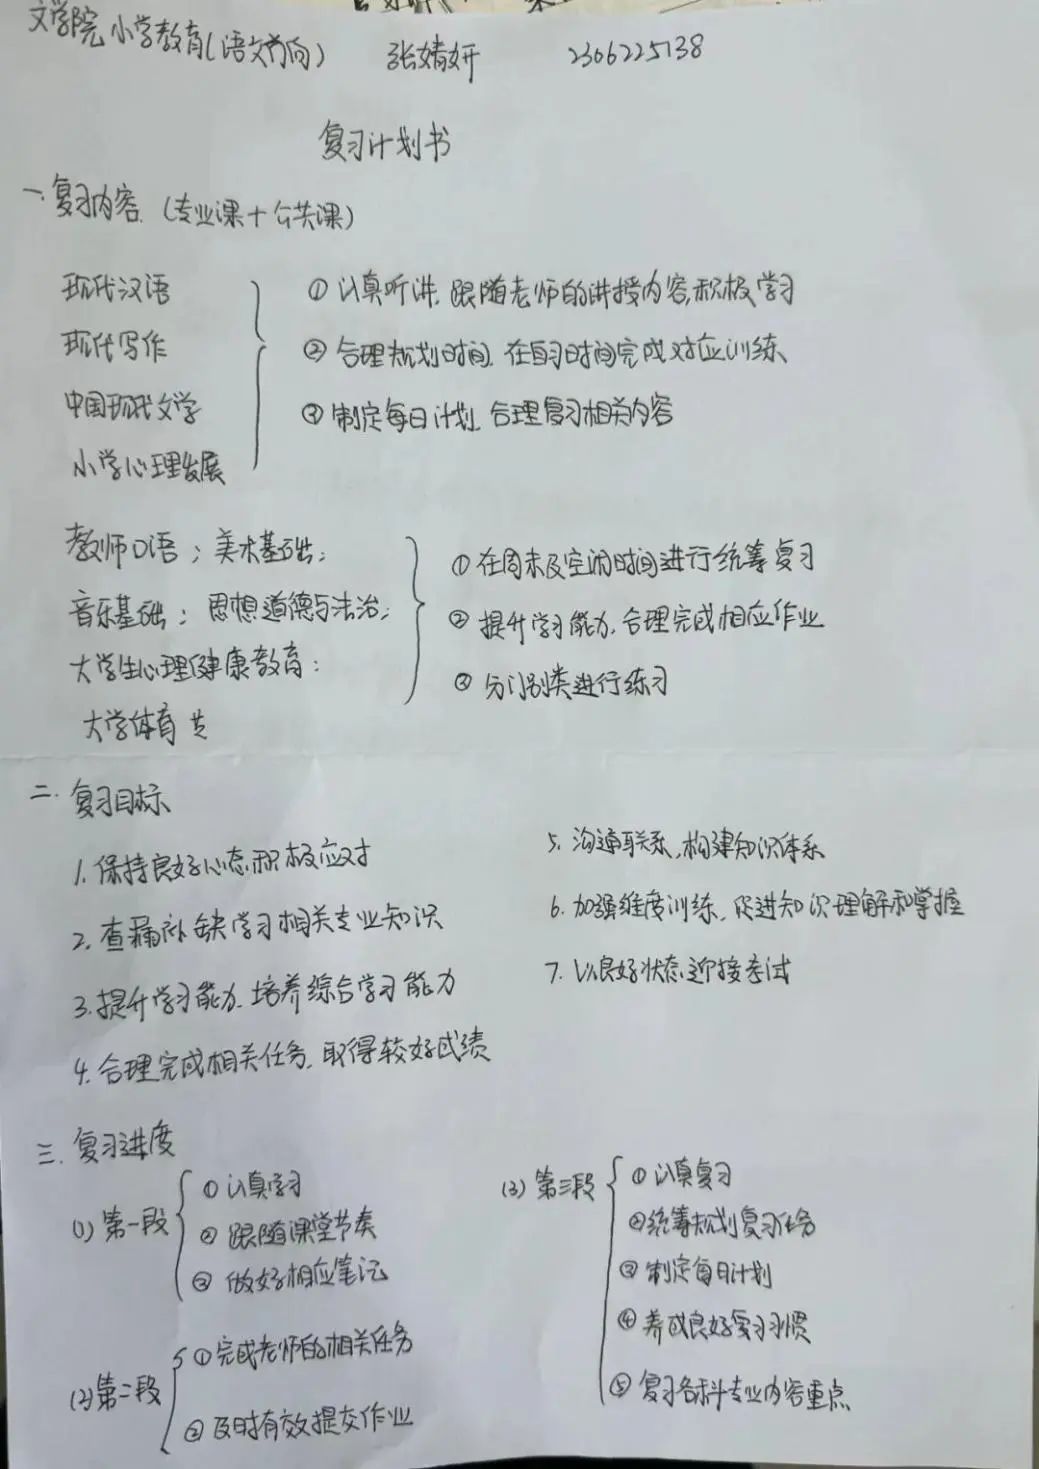 文学院 小学教育(语文方向) 张婧妍 2306225138
复习计划书
一.复习内容.(专业课+公共课)
现代汉语
现代写作
中国现代文学
小学心理发展
①认真听讲.跟随老师的讲授内容,积极学习
②合理规划时间.在自习时间完成对应训练、
③制定每日计划.合理复习相关内容
教师口语;美术基础;
音乐基础;思想道德与法治;
大学生心理健康教育;
大学体育
①在周末及空闲时间进行统筹复习
②提升学习能力.合理完成相应作业
③分门别类进行练习
二.复习目标
1.保持良好心态,积极应对
2.查漏补缺学习相关专业知识
3.提升学习能力.培养综合学习能力
4.合理完成相关任务.取得较好成绩
5.沟通联系,构建知识体系
6.加强维度训练,促进知识理解和掌握
7.以良好状态迎接考试
三.复习进度
(1)第一段
①认真学习
②跟随课堂节奏
③做好相应笔记
(2)第二段
①完成老师的相关任务
②及时有效提交作业
(3)第三段
①认真复习
②统筹规划复习任务
③制定每日计划
④养成良好复习习惯
⑤复习各科专业内容重点